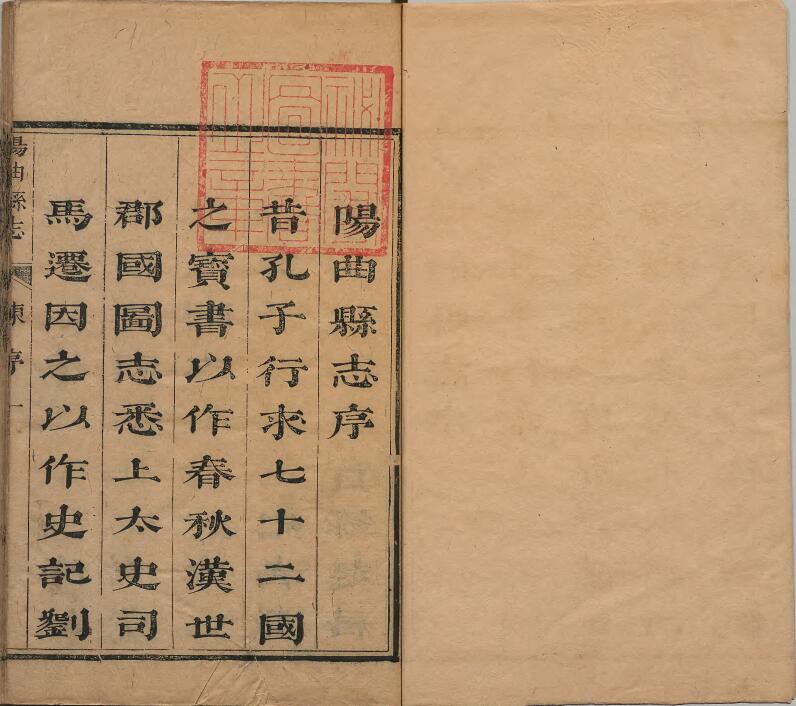 陽曲縣志序
昔孔子行求七十二國
之寳書以作春秋漢世
郡國圖志悉上太史司
馬遷因之以作史記劉
陽曲縣志
陳序
一